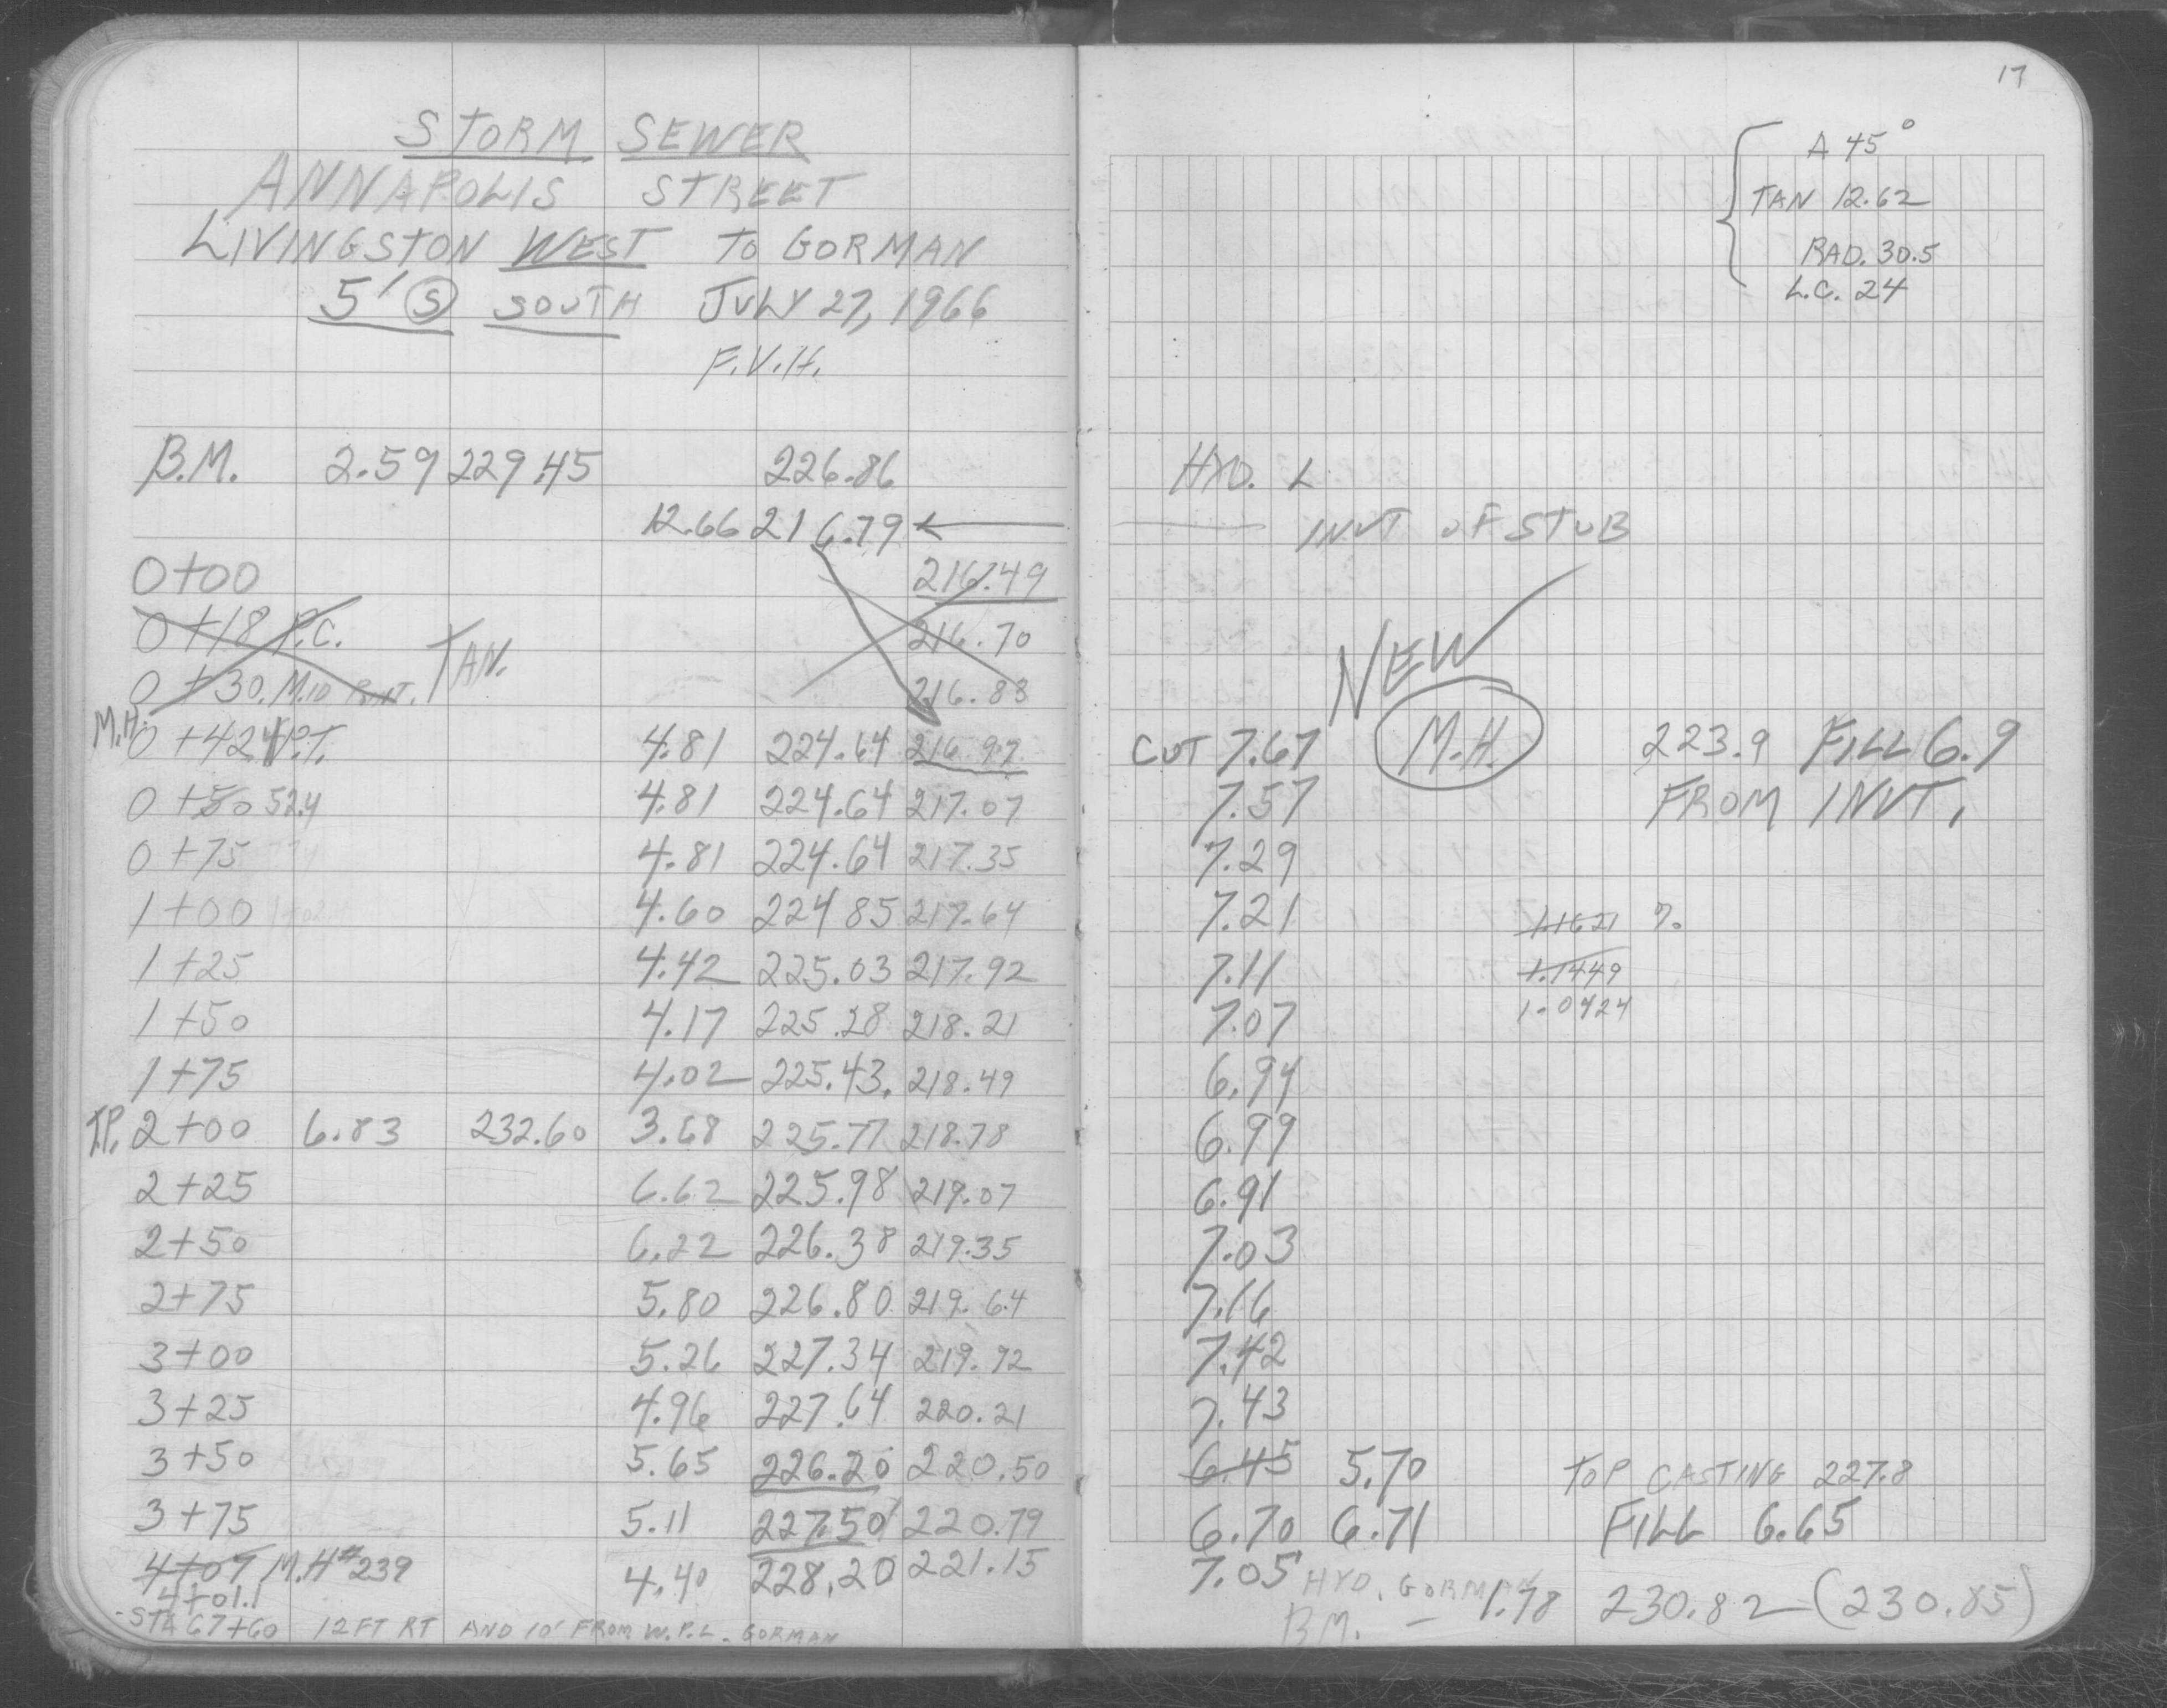 STORM SEWER
ANNAPOLIS STREET
LIVINGSTON WEST TO GORMAN
5' S SOUTH JULY 27, 1966
F.V.H.
B.M. 2.59 229.45 226.86
12.66 216.79 ←
0+00 216.49
0+18 P.C. 216.70
TAN.
0+30. MID POINT. 216.83
M.H. 0+42 P.T. 4.81 224.64 216.97
0+50 52.4 4.81 224.64 217.07
0+75 4.81 224.64 217.35
1+00 4.60 224.85 217.64
1+25 4.42 225.03 217.92
1+50 4.17 225.28 218.21
1+75 4.02 225.43. 218.49
T.P. 2+00 6.83 232.60 3.68 225.77 218.78
2+25 6.62 225.98 219.07
2+50 6.22 226.38 219.35
2+75 5.80 226.80 219.64
3+00 5.26 227.34 219.92
3+25 4.96 227.64 220.21
3+50 5.65 226.20 220.50
3+75 5.11 227.50 220.79
4+07 M.H #239 4.40 228.20 221.15
4+01.1
-STA 67+60 12 FT RT AND 10' FROM W.P.L. GORMAN
17
A 45°
TAN 12.62
RAD. 30.5
L.C. 24
HYD. L
INVT OF STUB
NEW
CUT 7.67 M.H. 223.9 FILL 6.9
7.57 FROM INVT.
7.29
7.21 1.1621 %
7.11 1.1449
7.07 1.0424
6.94
6.99
6.91
7.03
7.16
7.42
7.43
6.45 5.70 TOP CASTING 227.8
6.70 6.71 FILL 6.65
7.05 HYD. GORMAN
B.M. - 1.78 230.82 (230.85)